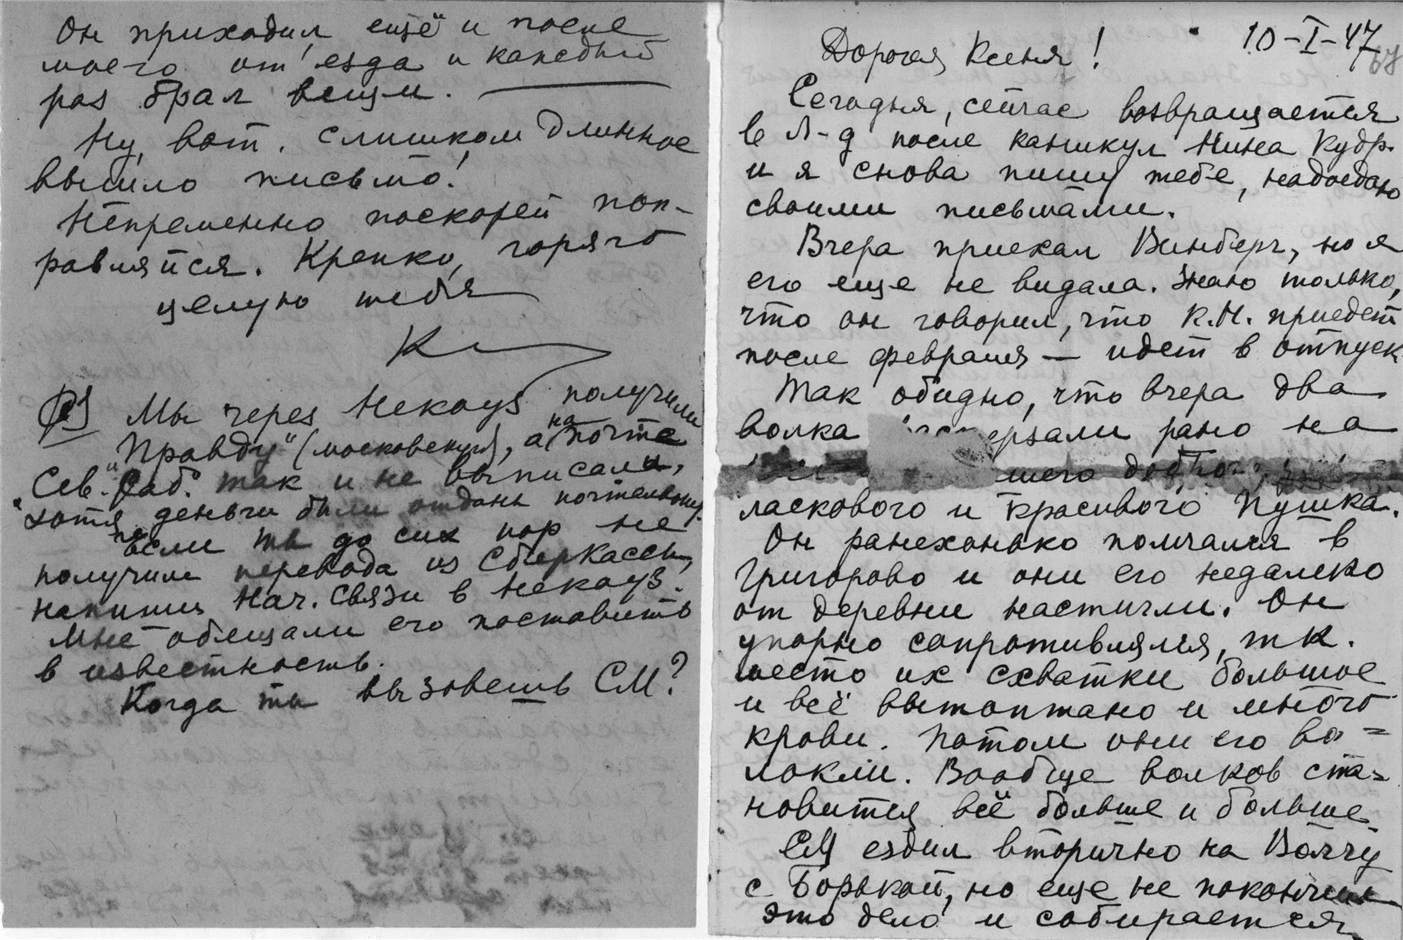 Он приходил ещё и после
моего от'езда и каждый
раз брал вещи.
Ну, вот. Слишком длинное
вышло письмо!
Непременно поскорей поп-
равляйся. Крепко, горячо
целую тебя
К
PS Мы через Некоуз получили
"Правду" (московскую), а на почте
"Сев. Раб." так и не выписали,
хотя деньги были отданы почтальону.
Если ты до сих пор не
получил перевода из Сберкассы,
напиши Нач. связи в Некоуз.
Мне обещали его поставить
в известность.
Когда ты вызовешь СМ?
10-I-47
67
Дорогая Ксеня!
Сегодня, сейчас возвращается
в Л-д после каникул Нина Кудр.
и я снова пишу тебе, надоедаю
своими письмами.
Вчера приехал Винберг, но я
его еще не видала. Знаю только,
что он говорил, что К.Н. приедет
после февраля — идет в отпуск
Так обидно, что вчера два
волка рано на
шего
ласкового и красивого Пушка.
Он ранехонько помчался в
Григорово и они его недалеко
от деревни настигли. Он
упорно сопротивлялся, т.к.
место их схватки большое
и всё вытоптано и много
крови. Потом они его во=
локли. Вообще волков ста=
новится всё больше и больше
СМ ездил вторично на Волчу
с Борькой, но еще не покончил
это дело и собирается